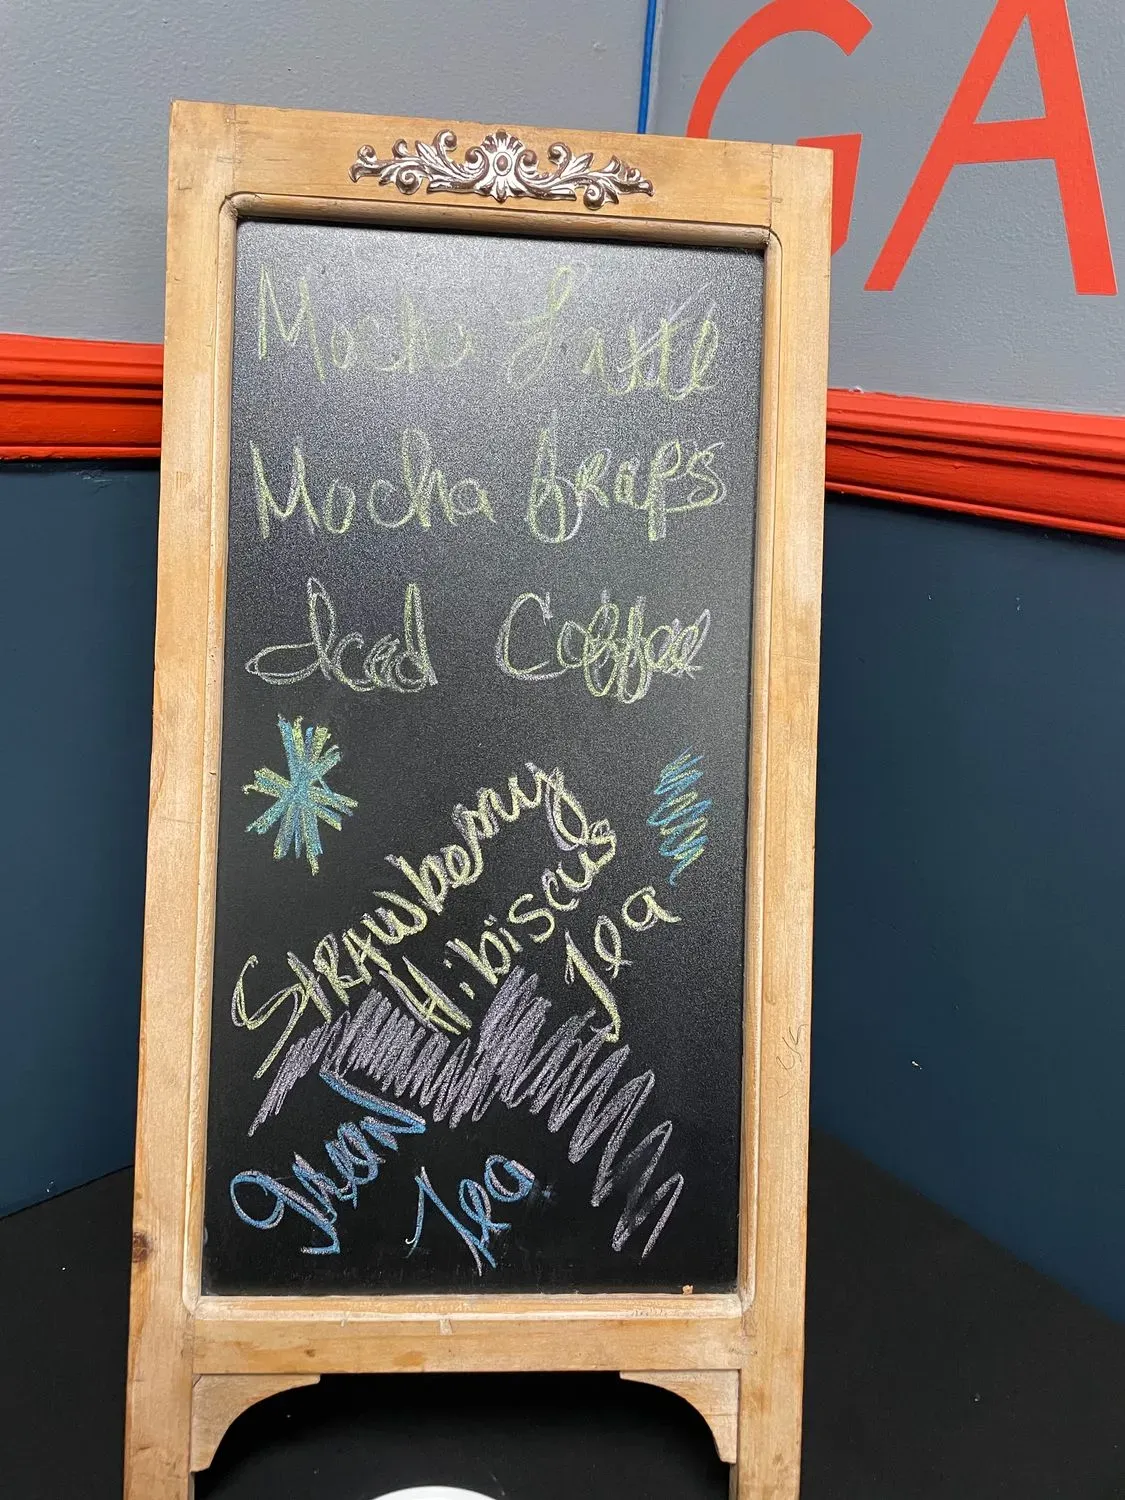 GA
Mocha Latte
Mocha fraps
Iced Coffee
STRAWberry
Hibiscus
Tea
Green
Tea